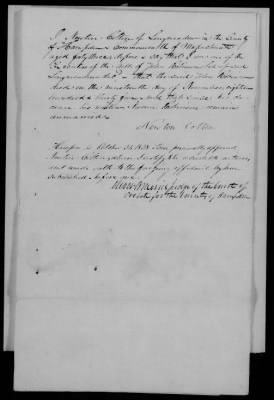 I Newton Colton of Longmeadow in the County
of Hampden & Commonwealth of Massachusetts
aged forty three years, depose & say that I was one of the
Executors of the will of John Robinson late of said
Longmeadow that the said John Robinson
died on the nineteenth day of November eighteen
hundred & thirty four and that since his de-
cease his widow Robinson remains
unmarried.
Newton Colton
Hampden ss October 24 1838 Then personally appeared
Newton Colton and
made oath to the foregoing affidavit by him
subscribed before me
Judge of the Court of
Probate for the County of Hampden